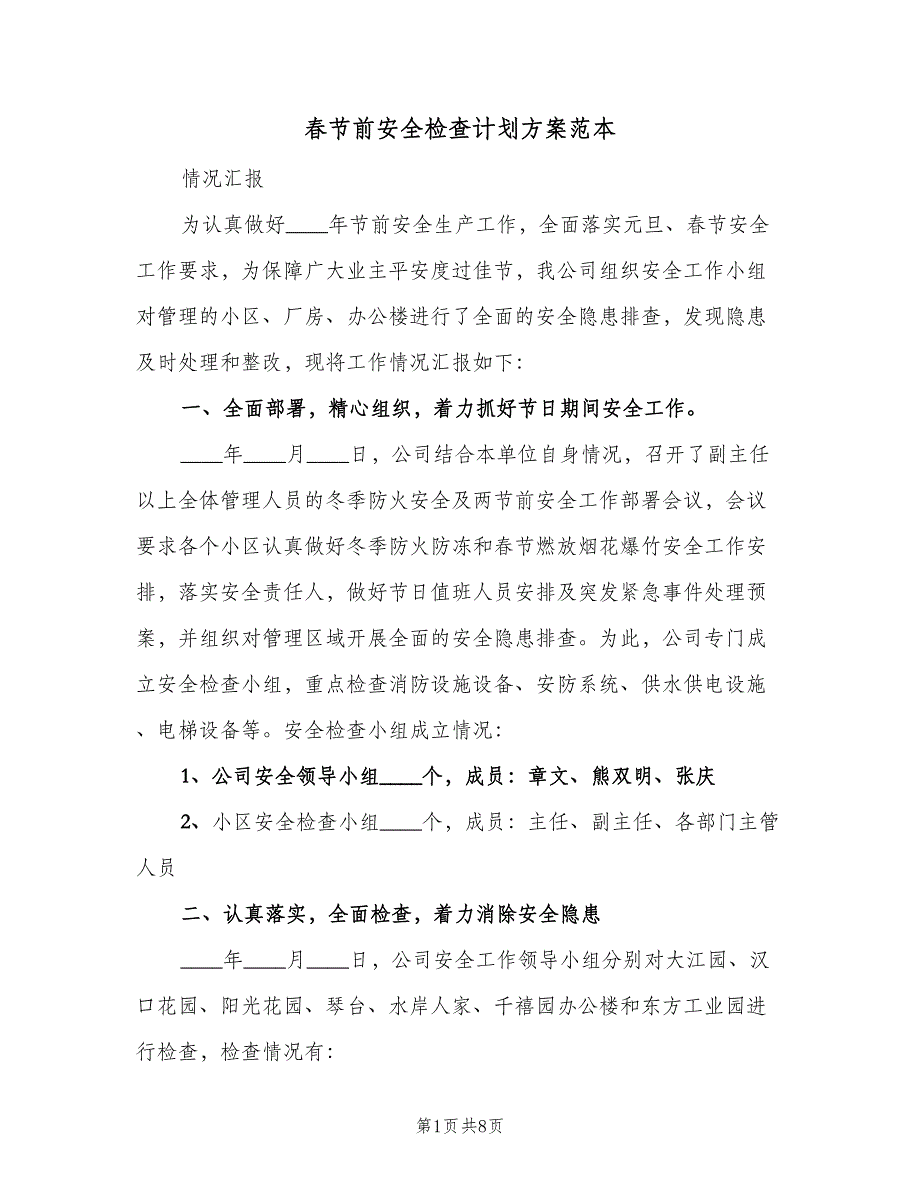 春节前安全检查计划方案范本
情况汇报
为认真做好____年节前安全生产工作，全面落实元旦、春节安全
工作要求，为保障广大业主平安度过佳节，我公司组织安全工作小组
对管理的小区、厂房、办公楼进行了全面的安全隐患排查，发现隐患
及时处理和整改，现将工作情况汇报如下：
一、全面部署，精心组织，着力抓好节日期间安全工作。
____年____月____日，公司结合本单位自身情况，召开了副主任
以上全体管理人员的冬季防火安全及两节前安全工作部署会议，会议
要求各个小区认真做好冬季防火防冻和春节燃放烟花爆竹安全工作安
排，落实安全责任人，做好节日值班人员安排及突发紧急事件处理预
案，并组织对管理区域开展全面的安全隐患排查。为此，公司专门成
立安全检查小组，重点检查消防设施设备、安防系统、供水供电设施
、电梯设备等。安全检查小组成立情况：
1、公司安全领导小组____个，成员：章文、熊双明、张庆
2、小区安全检查小组____个，成员：主任、副主任、各部门主管
人员
二、认真落实，全面检查，着力消除安全隐患
____年____月____日，公司安全工作领导小组分别对大江园、汉
口花园、阳光花园、琴台、水岸人家、千禧园办公楼和东方工业园进
行检查，检查情况有：
第1页共8页